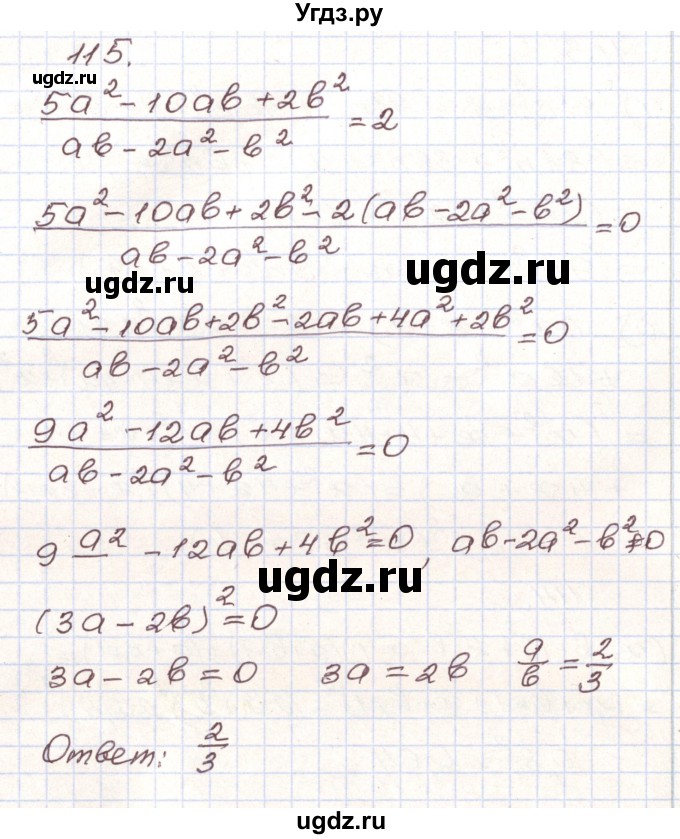 Угдз.ру
115.
ugdz.ru
(5a² - 10ab + 2b²)/(ab - 2a² - b²) = 2
(5a² - 10ab + 2b² - 2(ab - 2a² - b²))/(ab - 2a² - b²) = 0
ugdz.ru ugdz.ru
(5a² - 10ab + 2b² - 2ab + 4a² + 2b²)/(ab - 2a² - b²) = 0
(9a² - 12ab + 4b²)/(ab - 2a² - b²) = 0
9a² - 12ab + 4b² = 0, ab - 2a² - b² ≠ 0
ugdz.ru
(3a - 2b)² = 0
3a - 2b = 0 3a = 2b a/b = 2/3
Ответ: 2/3
ugdz.ru ugdz.ru
ugdz.ru